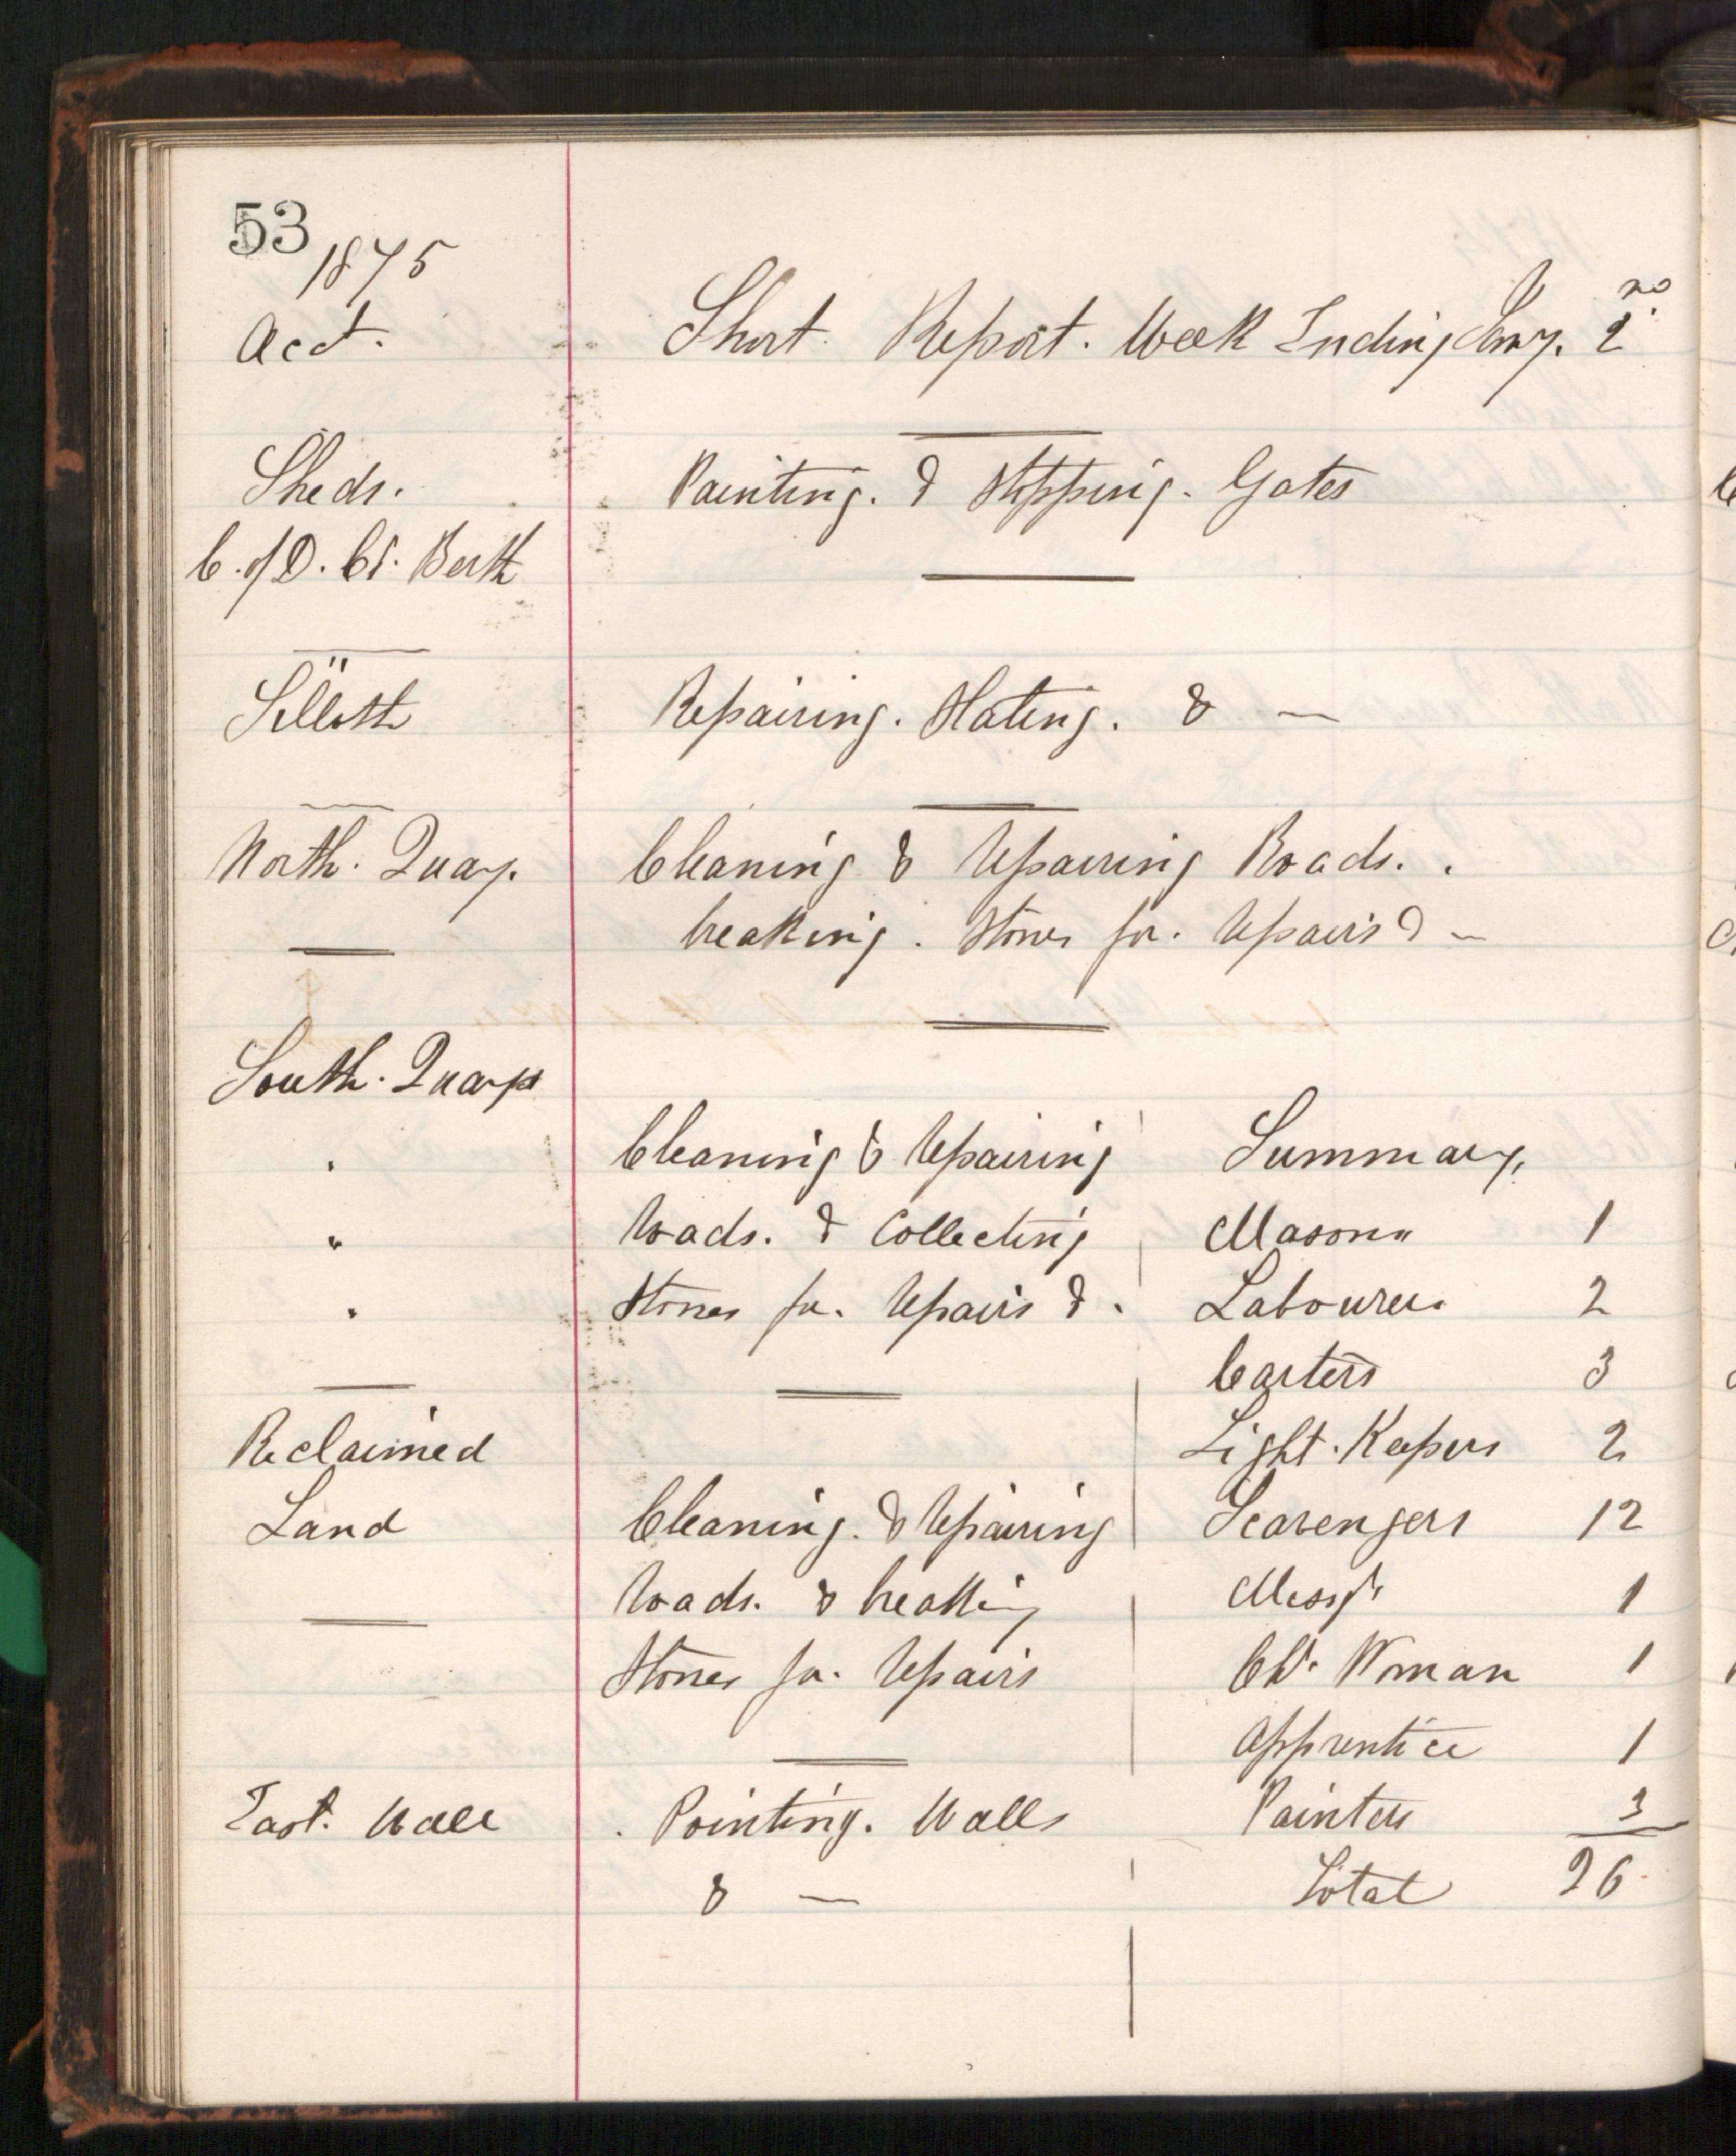 53
1875
Acct.
Short. Report. Week Ending Jany. 2nd
Sheds.
Painting. & Stopping. Gates
C. of D. Cs. Berth
" Silloth
Repairing. Slating. & —
North. Quay.
Cleaning & Repairing Roads.
breaking. Stones for. Repairs & —
South. Quays
Cleaning & Repairing
Roads. & Collecting
Stones for. Repairs &.
Summary.
Masons 1
Labourers 2
Carters 3
Light. Keepers 2
Scavengers 12
Messgr 1
Ch. Woman 1
Apprentice 1
Painters 3
Total 26
Reclaimed
Land
Cleaning. & Repairing
Roads. & breaking
Stones for. Repairs
East. Wall
Pointing. Walls
& —